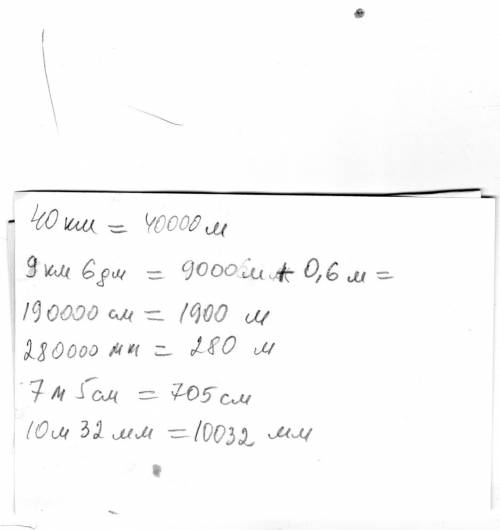 40 км = 40000 м
9 км 6 дм = 9000 м + 0,6 м =
190000 см = 1900 м
280000 мм = 280 м
7 м 5 см = 705 см
10 м 32 мм = 10032 мм